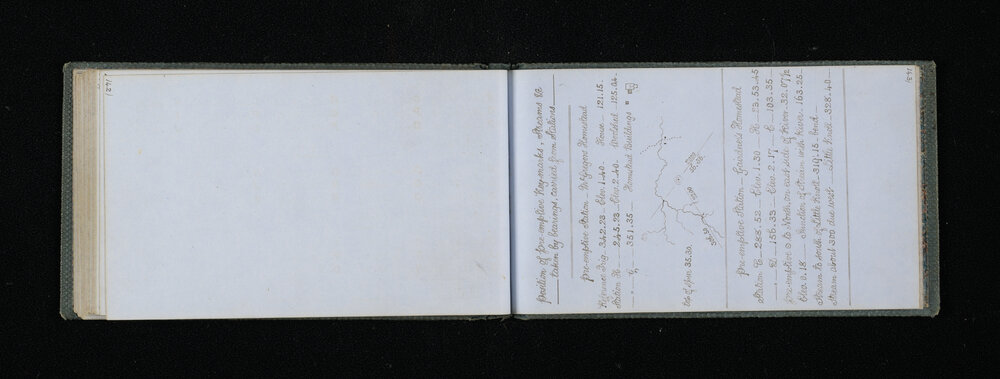 142]
143]
Position of pre-emptive Key-marks, Streams &c
taken by bearings, carried from stations
Pre-emptive Station — McGregors Homestead
Reference Trig. 342.23 — Elev. 1.40. House — 121.15.
Station H — 245.23 — Elev. 2.40. Woolshed — 125.04.
" G — 351.35 — Homestead Buildings =
35.30
Top of spur 35.30.
Pre-emptive Station — Gairdner's Homestead
Station — 288.52 — Elev. 1.30 — H — 23.53.45
" D — 156.33 — Elev. 2.17 — E — 103.35
Pre-emptive is to North, on each side of River — 32.07½
Elev. 0.18 Junction of stream with River. 163.25.
Stream to south of Little Knoll — 319.15 — bend —
stream about 300 due west — Little Knoll — 328.40 —